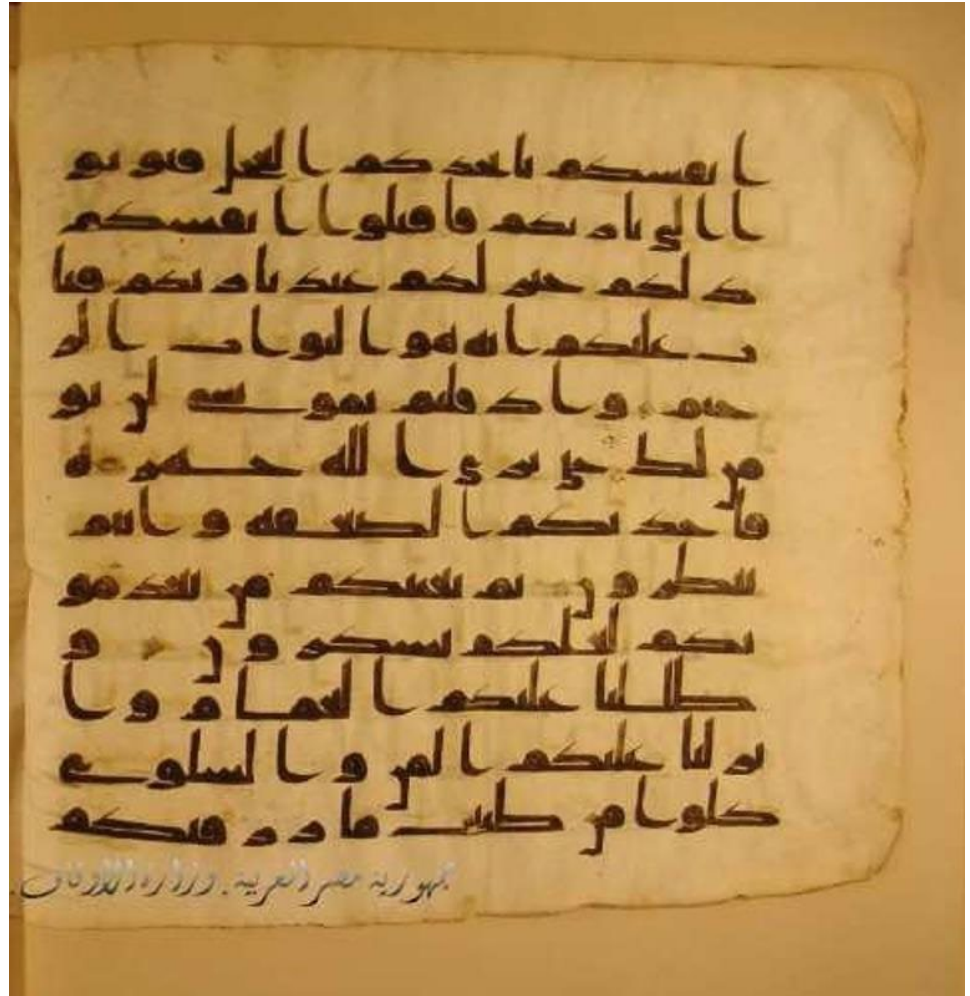 انفسكم باتخذكم العجل فتوبو
ا الى بارئكم فاقتلوا انفسكم
ذلكم خير لكم عند بارئكم فتا
ب عليكم انه هو التواب الر
حيم واذ قلتم يموسى لن نو
من لك حتى نرى الله جهرة
فاخذتكم الصعقة وانتم
تنظرون ثم بعثنكم من بعد مو
تكم لعلكم تشكرون و
ظللنا عليكم الغمام وا
نزلنا عليكم المن والسلوى
كلوا من طيبت ما رزقنكم
جمهورية مصر العربية . وزارة الأوقاف .